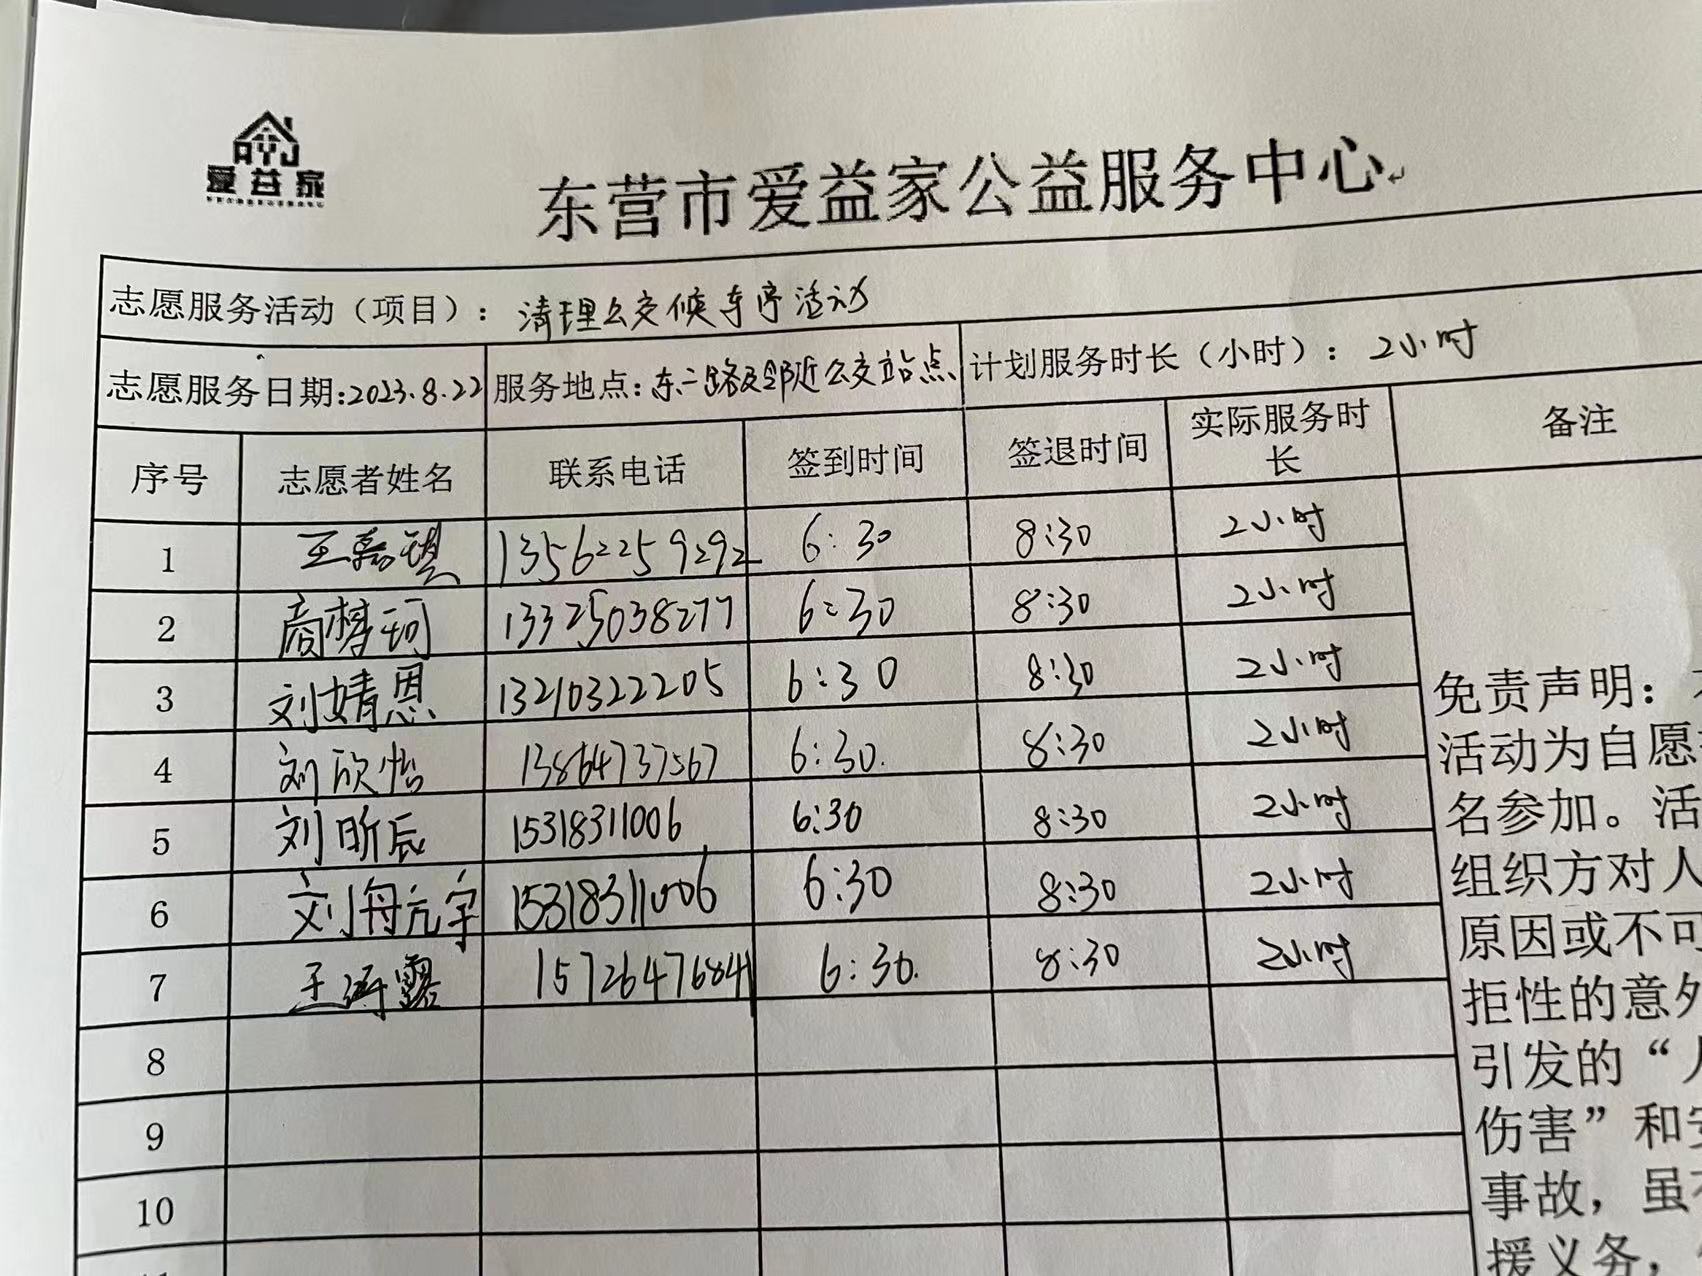 AYJ
爱益家
东营市爱益家公益服务中心
志愿服务活动（项目）：清理公交候车亭活动
志愿服务日期:2023.8.22 服务地点:东二路及邻近公交站点 计划服务时长（小时）：2小时
序号 志愿者姓名 联系电话 签到时间 签退时间 实际服务时长 备注
1 王嘉琪 13562259292 6:30 8:30 2小时
2 商梦珂 13325038277 6:30 8:30 2小时
3 刘婧恩 13210322205 6:30 8:30 2小时
4 刘欣怡 13864737567 6:30. 8:30 2小时
5 刘昕辰 15318311006 6:30 8:30 2小时
6 刘舟亢宇 15318311006 6:30 8:30 2小时
7 15726476841 6:30. 8:30 2小时
8
9
10
免责声明：
活动为自愿
名参加。活
组织方对人
原因或不可
拒性的意外
引发的“人
伤害”和安
事故，虽不
援义务，